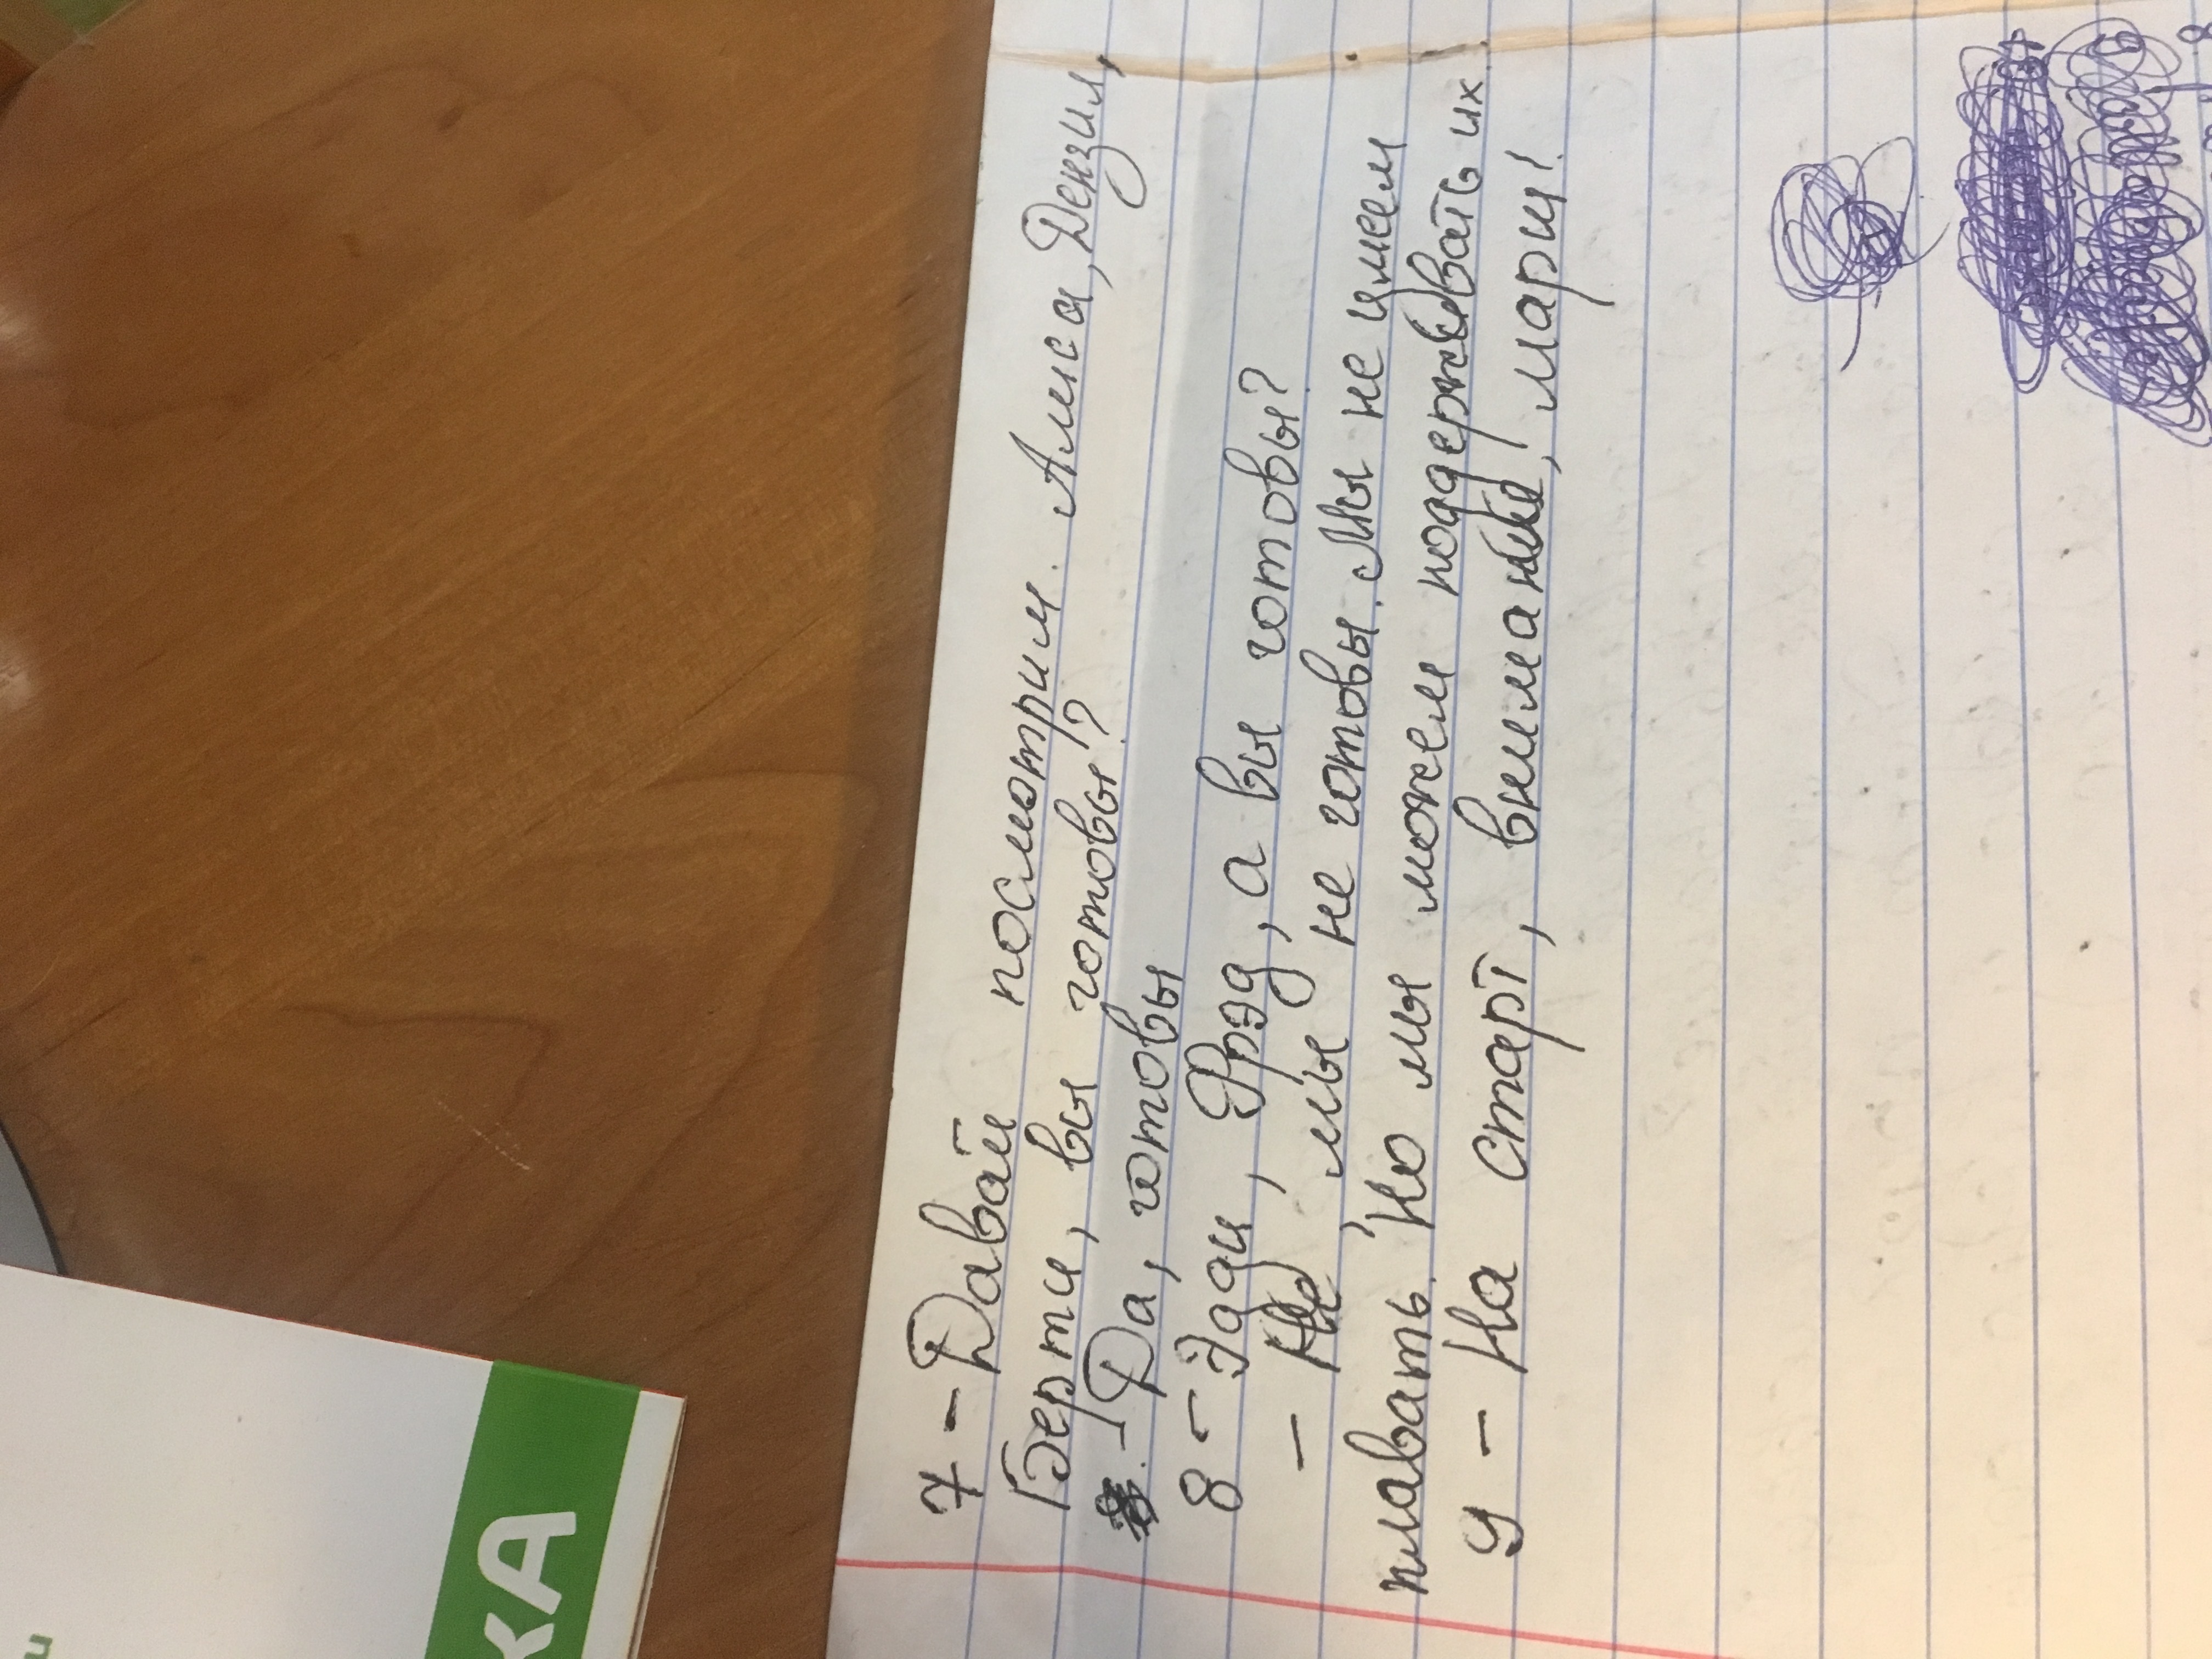 7 - Давай посмотрим. Алиса, Дензил,
Берти, вы готовы?
- Да, готовы
8 - Эди, Фрэд, а вы готовы?
- Не, мы не готовы. Мы не имеем
плавать. Но мы можем поддерживать их.
9 - На старт, внимание, марш!
жА
и